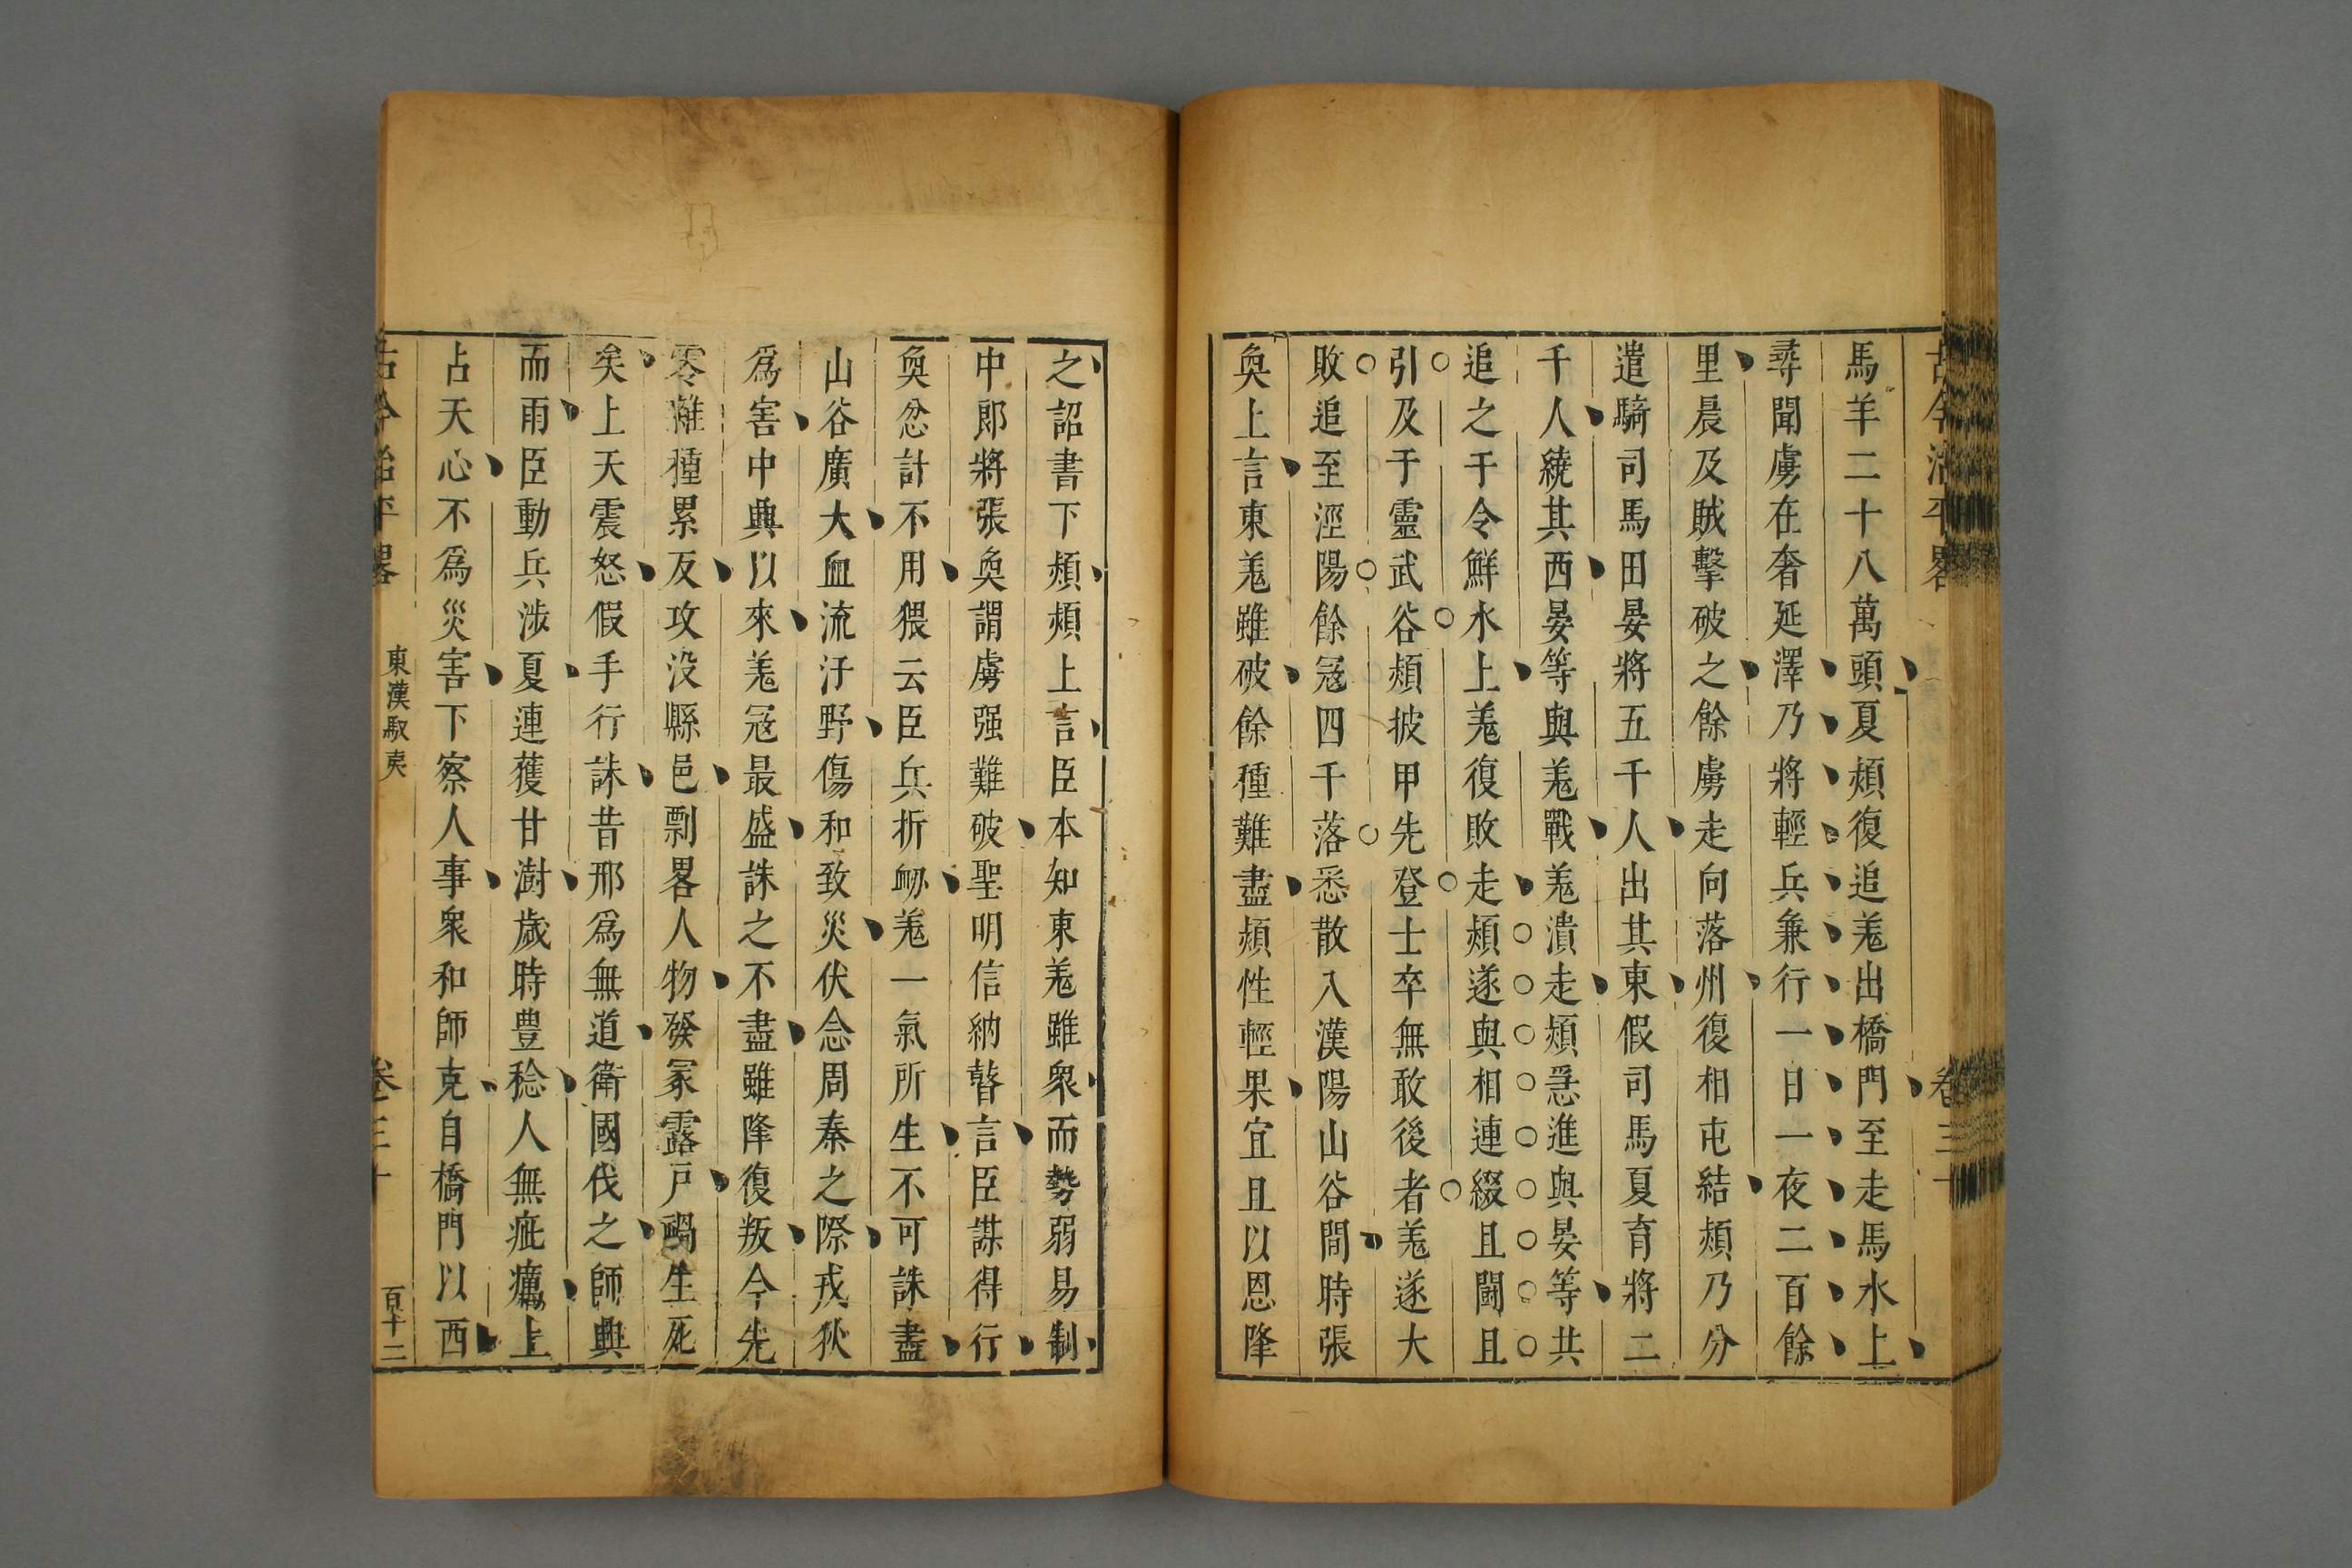 古今治平畧
卷三十
馬羊二十八萬頭夏熲復追羗出橋門至走馬水上
尋聞虜在奢延澤乃將輕兵兼行一日一夜二百餘
里晨及賊擊破之餘虜走向落州復相屯結熲乃分
遣騎司馬田晏將五千人出其東假司馬夏育將二
千人繞其西晏等與羗戰羗潰走熲急進與晏等共
追之于令鮮水上羗復敗走熲遂與相連綴且鬭且
引及于靈武谷熲披甲先登士卒無敢後者羗遂大
敗追至涇陽餘冦四千落悉散入漢陽山谷間時張
奐上言東羗雖破餘種難盡熲性輕果宜且以恩降
之詔書下熲熲上言臣本知東羗雖衆而勢弱易制
中郎將張奐謂虜强難破聖明信納瞽言臣謀得行
奐忿計不用猥云臣兵折衂羗一氣所生不可誅盡
山谷廣大血流汙野傷和致災伏念周秦之際戎狄
爲害中興以來羗冦最盛誅之不盡雖降復叛今先
零雜種累反攻没縣邑剽畧人物發冢露尸禍生死
矣上天震怒假手行誅昔邢爲無道衛國伐之師興
而雨臣動兵涉夏連獲甘澍歲時豊稔人無疵癘上
占天心不爲災害下察人事衆和師克自橋門以西
古今治平畧
東漢馭夷
卷三十
百十二